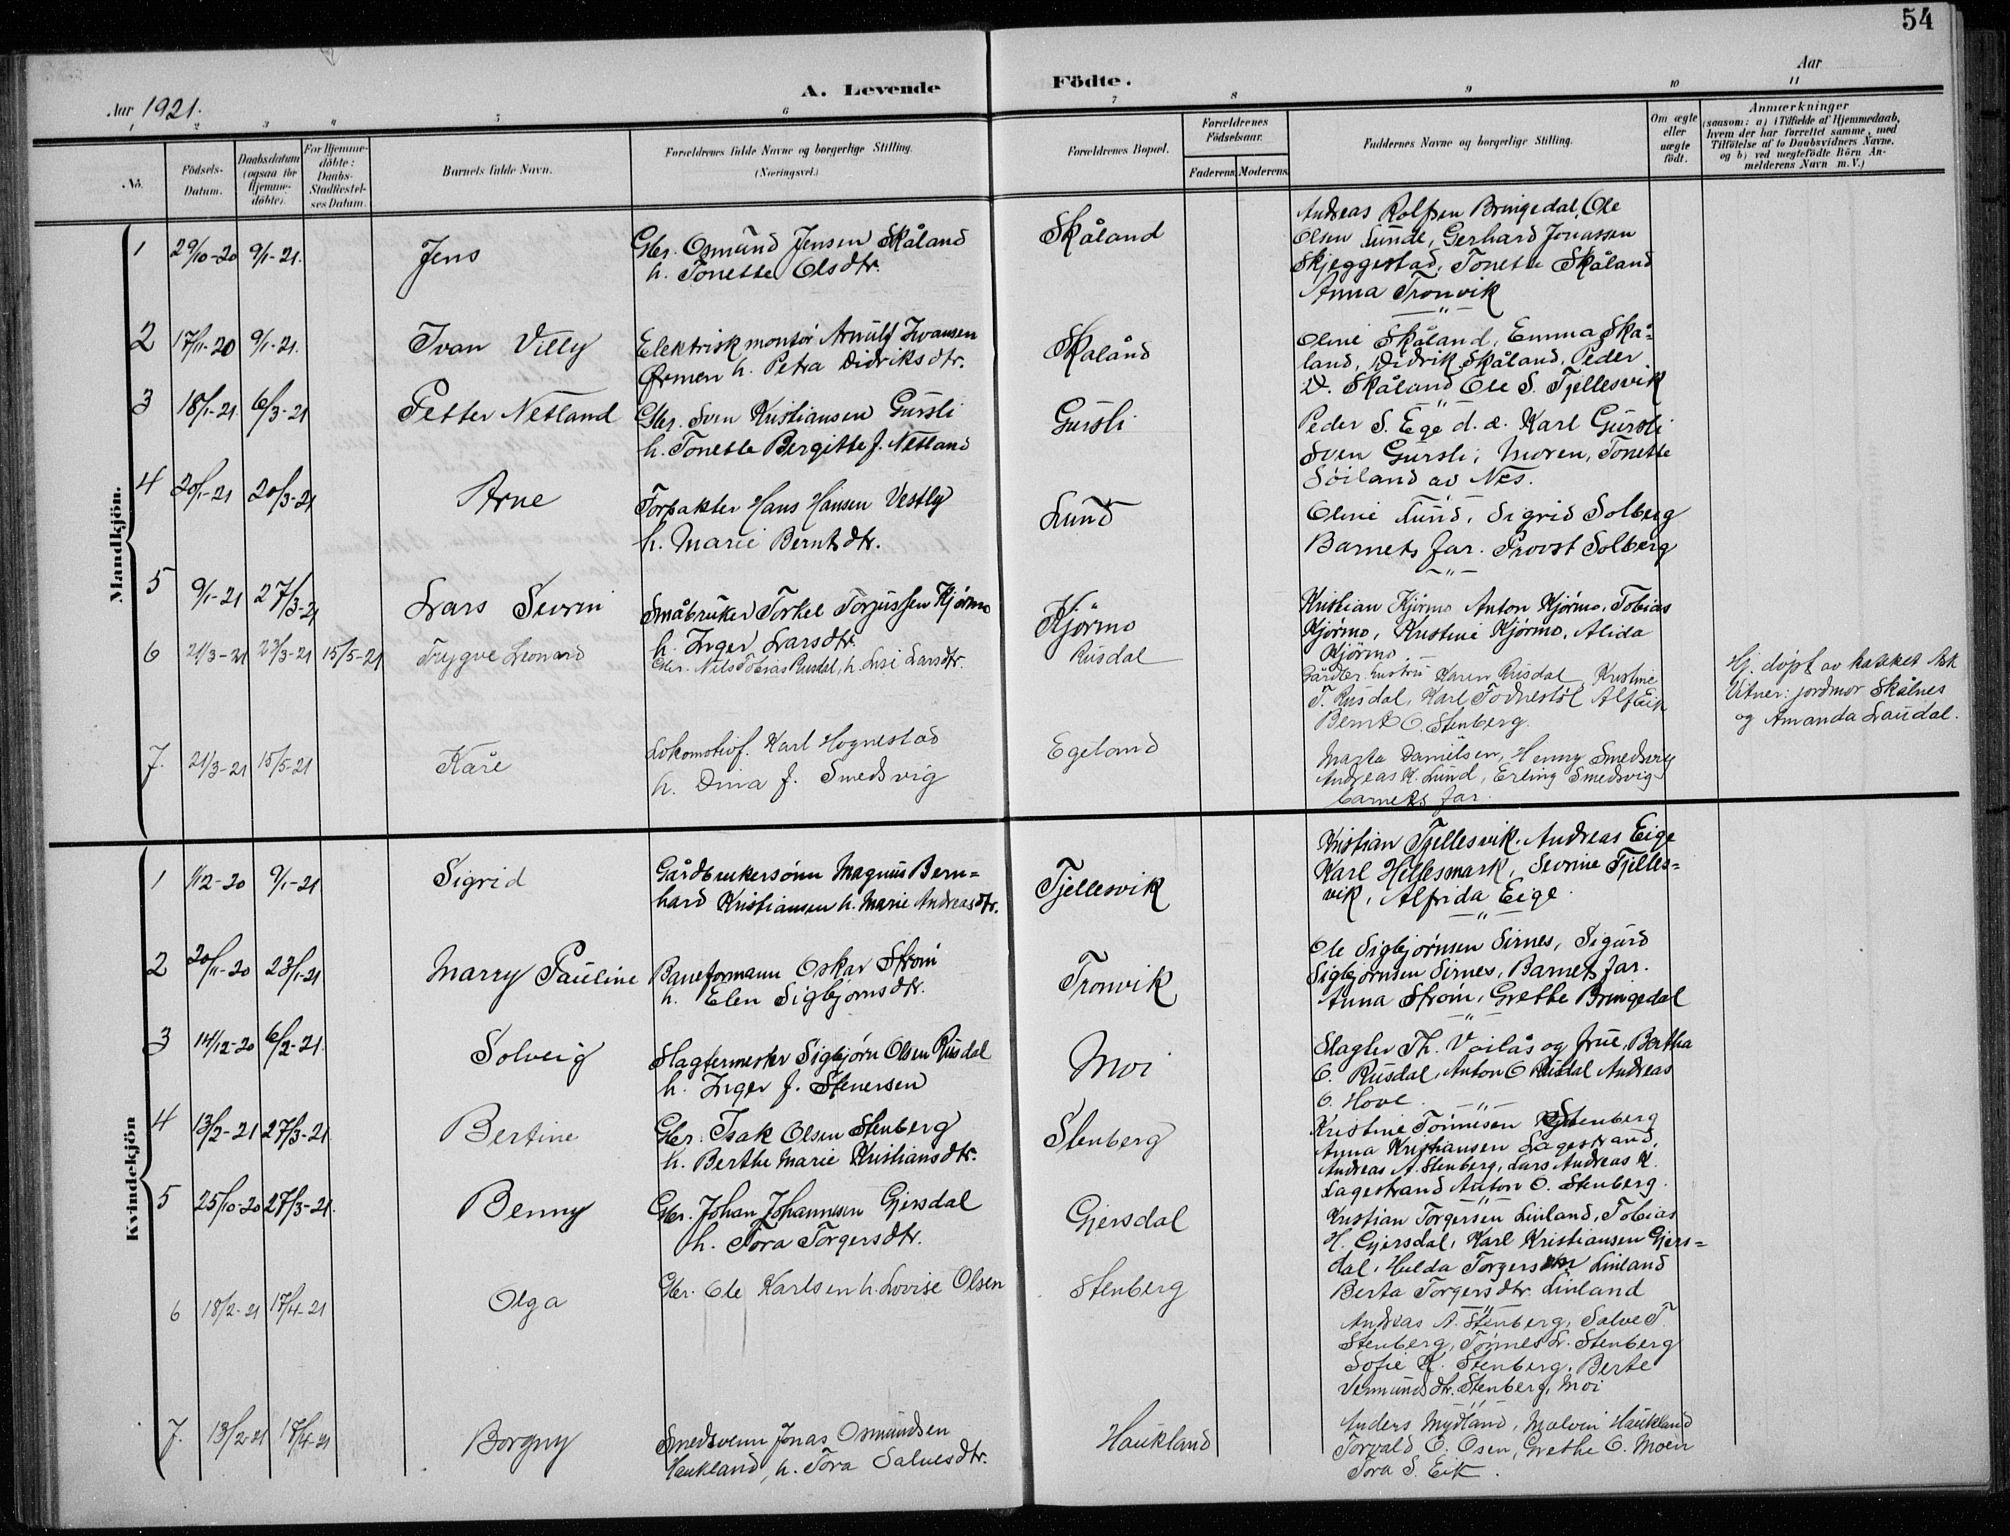 54
A. Levende Födte.
Aar 1921.
Aar
1 2 3 4 5 6 7 8 9 10 11
No.
Födsels-Datum.
Daabsdatum (ogsaa for Hjemme-döbte).
For Hjemme-döbte: Daabs-Stadfæstel-ses Datum.
Barnets fulde Navn.
Forældrenes fulde Navne og borgerlige Stilling.
(Næringsvei.)
Forældrenes Bopæl.
Forældrenes Födselsaar.
Faderens Moderens
Faddernes Navne og borgerlige Stilling.
Om ægte eller uægte födt.
Anmærkninger
(saasom: a) i Tilfælde af Hjemmedaab,
hvem der har forrettet samme, med
Tilföielse af to Daabsvidners Navne,
og b) ved uægtefödte Börn An-
melderens Navn m. V.)
Mandkjön.
1 29/10-20 9/1-21. Jens
Gbr. Osmund Jensen Skåland
h. Tonette Olsdtr.
Skåland
Andreas Rolfsen Bringedal, Ole
Olsen Lunde, Gerhard Jonassen
Skjeggestad, Tonette Skåland
Anna Tronvik
2 17/11-20 9/1-21. Ivan Villy
Elektriskmontør Arnulf Ivansen
Ørmen h. Petra Didriksdtr.
Skaland
Oline Skåland, Emma Skå-
land, Didrik Skåland, Peder
D. Skåland Ole S. Tjellesvik
3 18/1-21 6/3-21 Petter Netland
Gbr. Sven Kristiansen Gursli
h. Tonette Bergitte f. Netland
Gursli
Peder S. Ege d. æ. Karl Gursli
Sven Gursli, Moren, Tonette
Søiland av Nes.
4 20/1-21 20/3-21 Arne
Forpakter Hans Hansen Vestly
h. Marie Berntsdtr.
Lund
Oline Lund, Sigrid Solberg
Barnets far. Provst Solberg
5 9/1-21 27/3-21 Lars Sevrin
Småbruker Torkel Torjussen Kjørmo
h. Inger Larsdtr.
Kjörmo
Kristian Kjørmo Anton Kjørmo, Tobias
Kjørmo, Kristine Kjørmo, Alida
Kjørmo
6 21/3-21 23/3-21 15/5-21 Trygve Leonard
Gbr. Nils Tobias Rusdal, h. Lisi Larsdtr.
Rusdal
Gårdbr. hustru Karen Rusdal, Kristine
T. Rusdal, Karl Todnestöl Alf Eik
Bernt O. Stenberg.
Hj. døpt av
Vitner: jordmor Skålnes
og Amanda Laudal.
7. 21/3-21 15/5-21 Kåre
Lokomotivf. Karl Hognestad
h. Dina f. Smedsvig
Egeland
Marta Danielsen, Henny Smedsvig
Andreas K. Lund, Erling Smedsvig
barnets far.
Kvindekjön
1 1/12-20 9/1-21 Sigrid
Gårdbrukersønn Magnus Bern-
hard Kristiansen h. Marie Andreasdtr.
Tjellesvik
Kristian Tjellesvik. Andreas Eige
Karl Hellesmark, Sevrine Tjelles-
vik, Alfrida Eige.
2 20/11-20 23/1-21 Marry Pauline
Baneformann Oskar Strøm
h. Elen Sigbjørnsdtr.
Tronvik
Ole Sigbjørnsen Sirnes, Sigurd
Sigbjørnsen Sirnes, Barnets far.
Anna Strøm, Grethe Bringedal
3 14/12-20 6/2-21. Solveig
Slagtermester Sigbjørn Olsen Rusdal
h. Inger f. Stenersen
Moi
Slagter Th. Voilås og frue, Bertha
O. Rusdal, Anton O Rusdal Andreas
O. Hove.
4 13/2-21 27/3-21. Bertine
Gbr. Isak Olsen Stenberg
h. Berthe Marie Kristiansdtr.
Stenberg
Kristine Tønnesen Stenberg
Anna Kristiansen Lagestrand,
Andreas A. Stenberg, Lars Andreas K.
Lagestrand Anton O. Stenberg.
5 25/10-20 27/3-21. Benny
Gbr. Johan Johannesen Gjersdal
h. Tora Torgersdtr.
Gjersdal
Kristian Torgersen Linland, Tobias
H. Gjersdal, Karl Kristiansen Gjers-
dal, Hulda Torgersen Linland
Berta Torgersdtr. Linland
6 18/2-21 17/4-21 Olga
Gbr. Ole Karlsen h. Lovise Olsen
Stenberg
Andreas A. Stenberg, Salve T.
Stenberg, Tønnes L. Stenberg
Sofie K. Stenberg, Berte
Vermundsdtr. Stenberg, Moi
7. 13/2-21 17/4-21 Borgny
Smedsvenn Jonas Osmundsen
Haukland, h. Tora Salvesdtr.
Haukland
Anders Mydland, Malvin Haukland
Torvald O. Osen, Grethe O. Moen
Tora S. Eik.